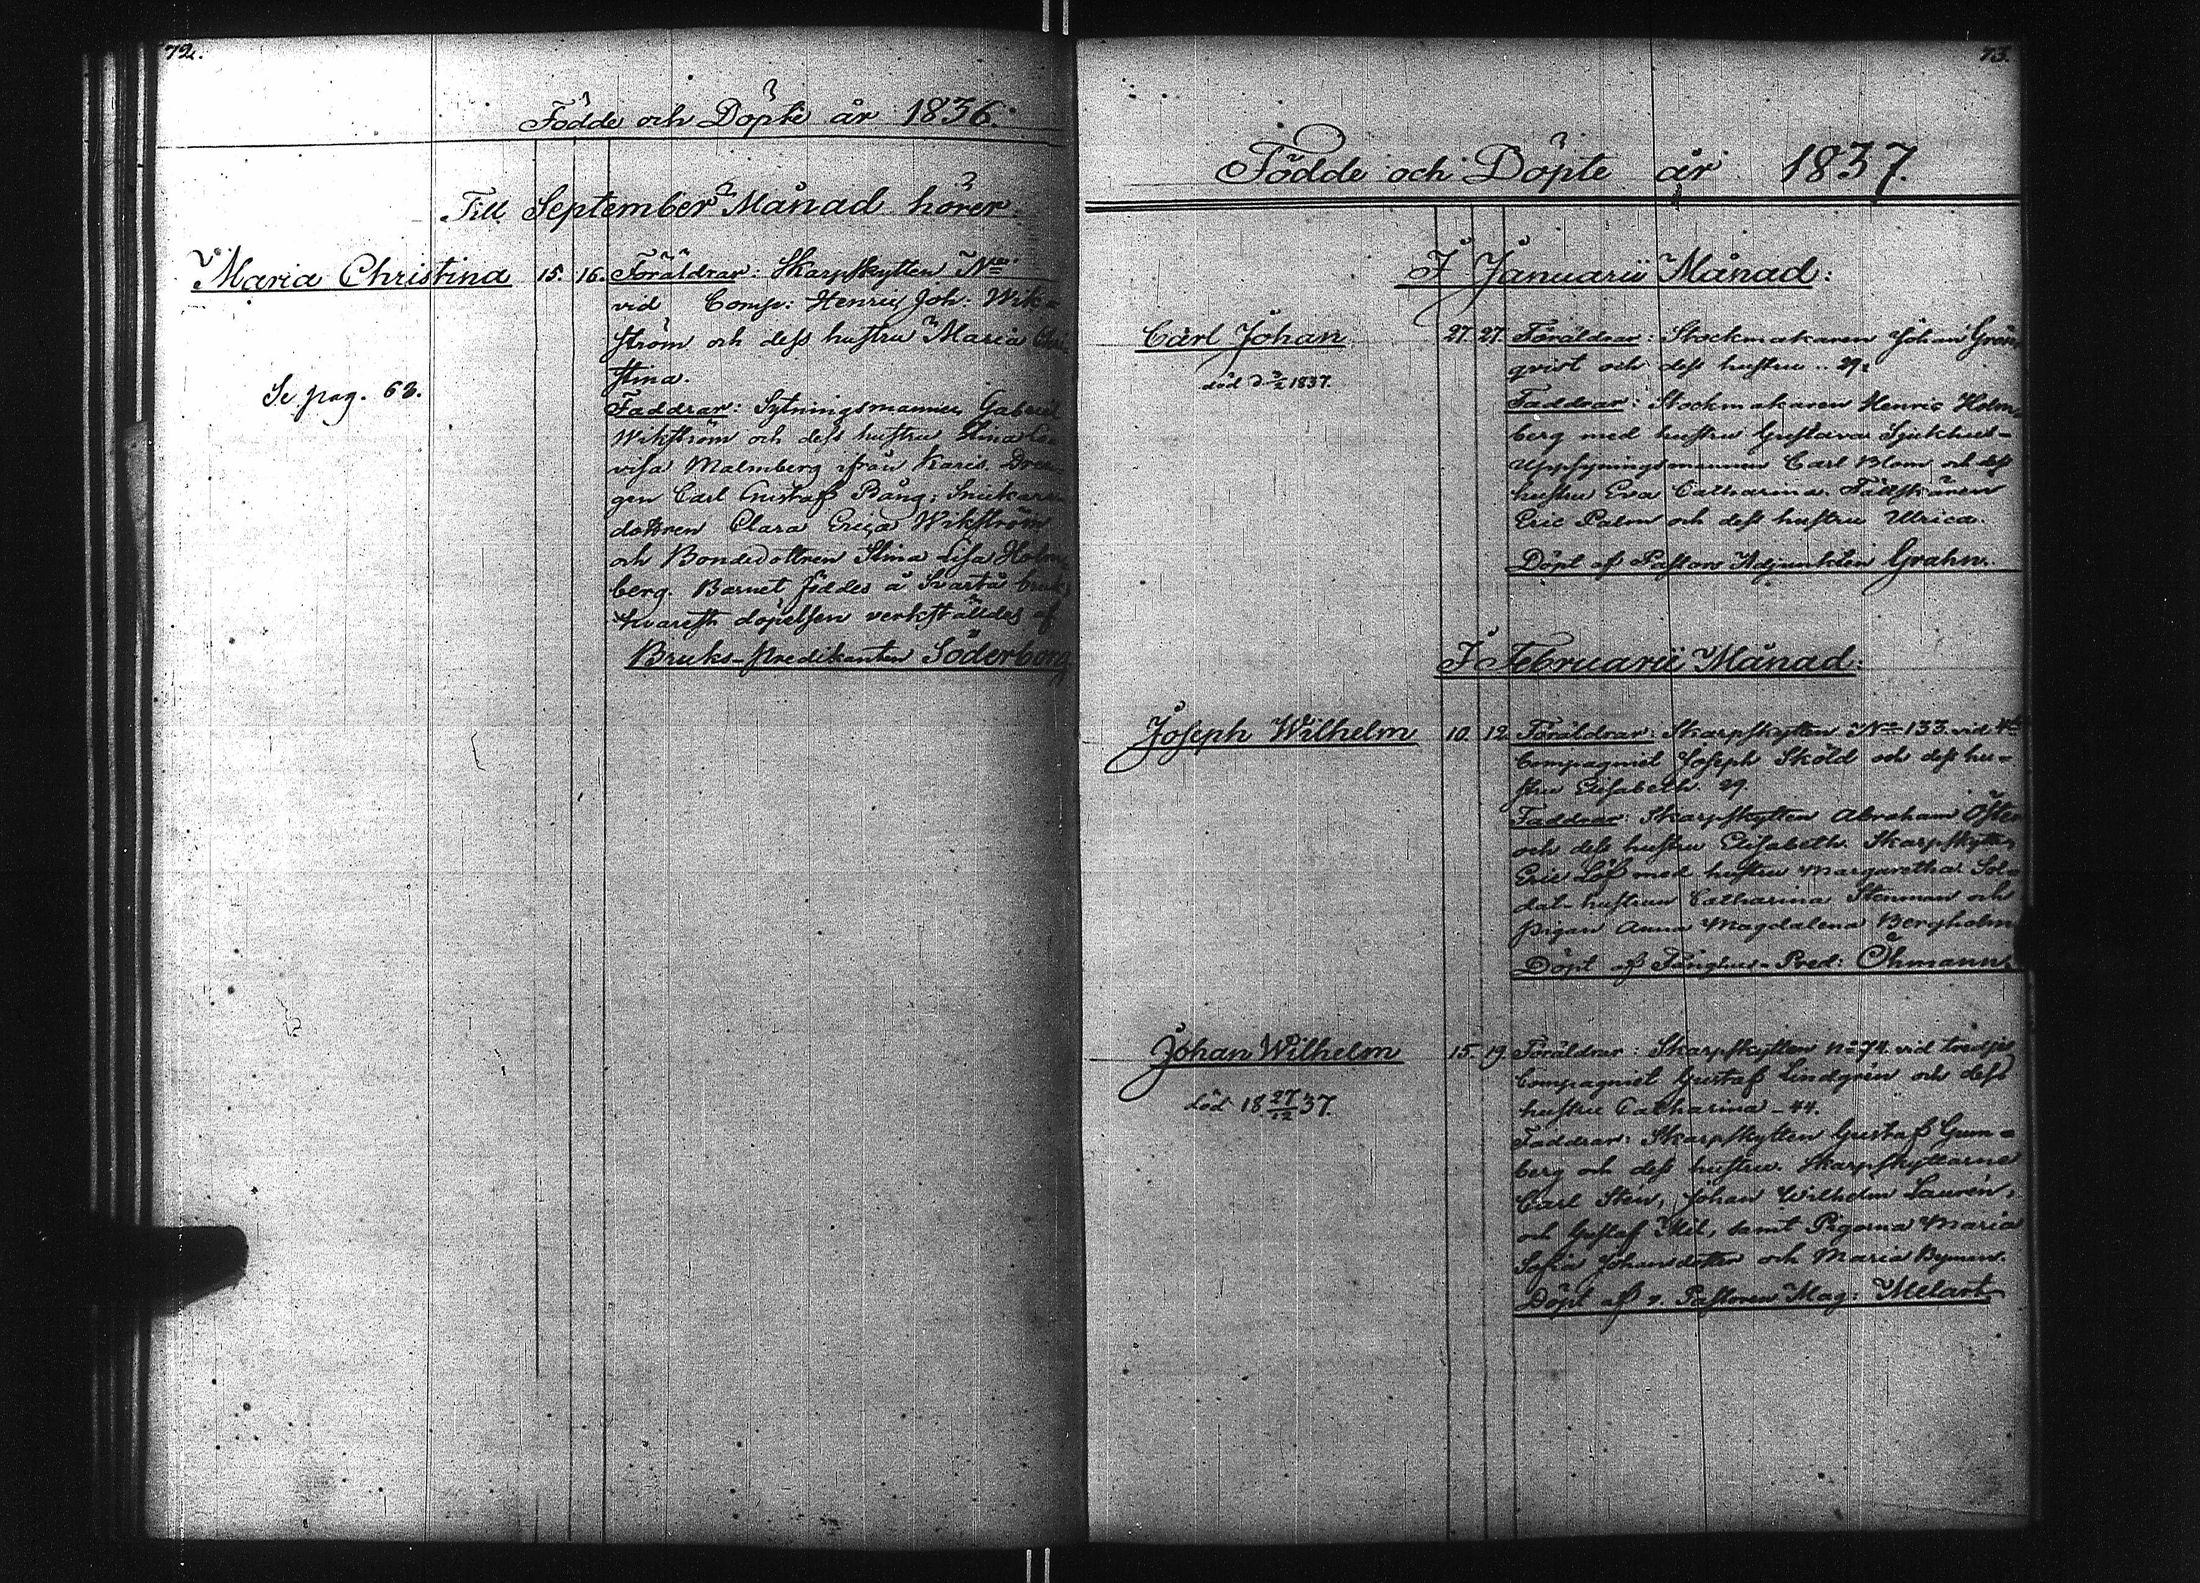 72.
Födde och Döpte år 1836.
Till September Månad hörer.
Maria Christina 15. 16. Föräldrar: Skarpskytten No
vid Comp: Henric Joh. Wik-
ström och dess hustru Maria Chri-
stina.
Se pag. 63.
Faddrar: Sytningsmannen Gabriel
Wikström och dess hustru Stina Lo-
visa Malmberg ifrån Karis. Dren-
gen Carl Gustaf Bång; Snickare
dottren Clara Erica Wikström
och Bondedottren Stina Lisa Holm-
berg. Barnet föddes å Svartå bruk,
hvarest döpelsen verkställdes af
Bruks-predikanten Söderborg
73.
Födde och Döpte år 1837.
I Januarii Månad:
Carl Johan 27. 27. Föräldrar: Stockmakaren Johan Grön-
qvist och dess hustru .. 29.
död d. 3/2 1837.
Faddrar: Stockmakaren Henric Holm-
berg med hustru Gustava Sjukhus-
Uppsyningsmannen Carl Blom och dess
hustru Eva Catharina. Fältskären
Eric Palm och dess hustru Ulrica.
Döpt af Pastors Adjunkten Grahn.
I Februarii Månad:
Joseph Wilhelm 10. 12. Föräldrar: Skarpskytten No 133 vid 4de
Compagniet Joseph Sköld och dess hu-
stru Elisabeth. 29.
Faddrar: Skarpskytten Abraham Öster
och dess hustru Elisabeth. Skarpskytten
Eric Löf med hustru Margaretha. Sol-
dat-hustrun Catharina Stenman och
pigan Anna Magdalena Bergholm
Döpt af Fånghus-Pred: Öhmann.
Johan Wilhelm 15. 19. Föräldrar: Skarpskytten No 74 vid tredje
Compagniet Gustaf Lindgrén och dess
hustru Catharina - 44.
död 18 27/12 37.
Faddrar: Skarpskytten Gustaf Gum-
berg och dess hustru. Skarpskyttarne
Carl Sten, Johan Wilhelm Laurén,
och Gustaf Mil, samt Pigorna Maria
Sofia Johansdotter och Maria Byman.
Döpt af v. Pastoren Mag: Melart